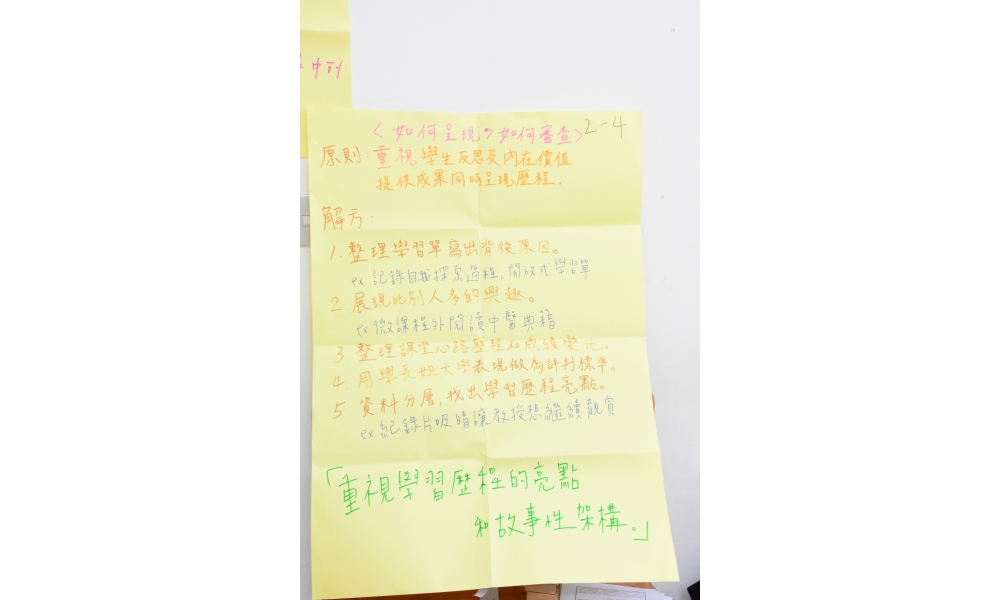 中刊
<如何呈現、如何審查> 2-4
原則:重視學生反思及內在價值
提供成果同時呈現歷程。
解方:
1. 整理學習單寫出背後原因。
ex 記錄自我探索過程,開放式學習單
2 展現比別人多的興趣。
ex 微課程外閱讀中醫典籍
3 整理課堂心路歷程和成績變化.
4. 用學長姐大學表現做為評判標準。
5 資料分層,找出學習歷程亮點。
ex 紀錄片吸睛讓教授想繼續觀賞
「重視學習歷程的亮點
和故事性架構。」